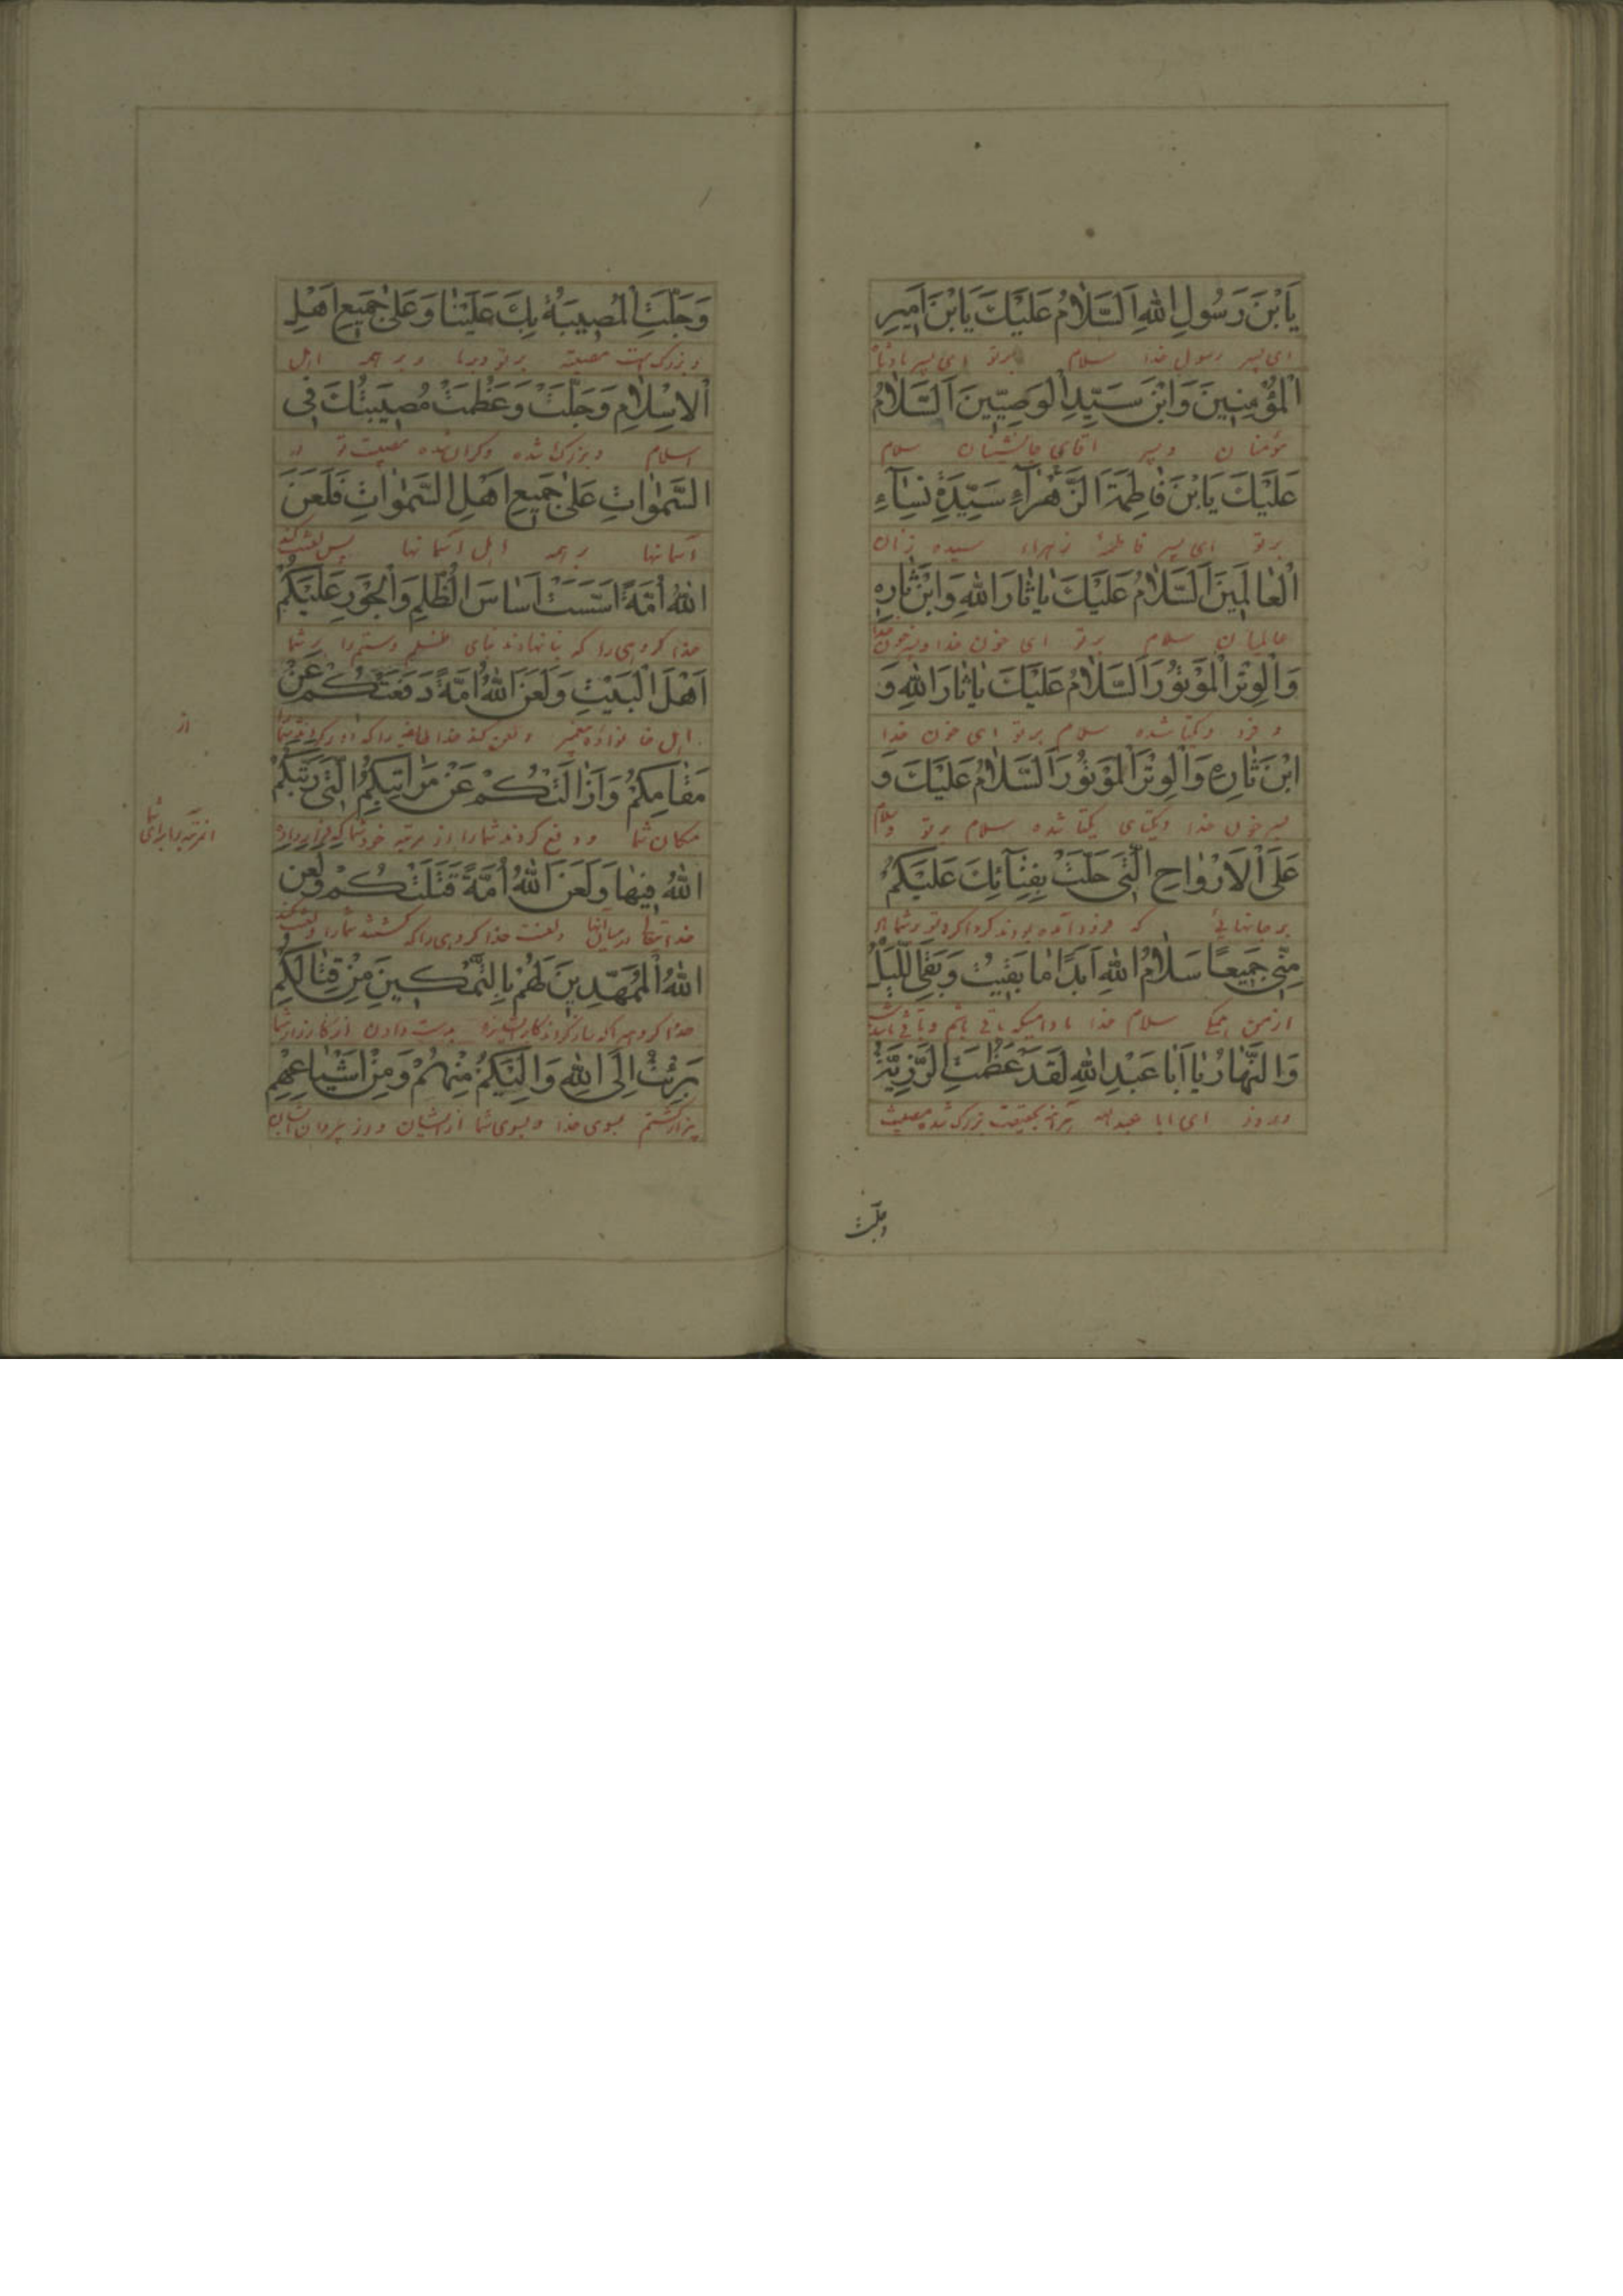 يَا بْنَ رَسُولِ اللهِ اَلسَّلَامُ عَلَيْكَ يَا بْنَ اَمِيرِ
ای پسر رسول خدا سلام بر تو ای پسر پادشاه
الْمُؤْمِنِينَ وَابْنَ سَيِّدِ الْوَصِيِّينَ اَلسَّلَامُ
مؤمنان و پسر اقای جانشینان سلام
عَلَيْكَ يَا بْنَ فَاطِمَةَ الزَّهْرَاءِ سَيِّدَةِ نِسَاءِ
بر تو ای پسر فاطمهٔ زهراء سیده زنان
الْعَالَمِينَ اَلسَّلَامُ عَلَيْكَ يَا ثَارَ اللهِ وَابْنَ ثَارِهِ
عالمیان سلام بر تو ای خون خدا و پسر خون خدا
وَالْوِتْرَ الْمَوْتُورَ اَلسَّلَامُ عَلَيْكَ يَا ثَارَ اللهِ وَ
و فرد و یکتا شده سلام بر تو ای خون خدا
ابْنَ ثَارِهِ وَالْوِتْرَ الْمَوْتُورَ اَلسَّلَامُ عَلَيْكَ وَ
پسر خون خدا و یکتای یکتا شده سلام بر تو وسلام
عَلَى الْاَرْوَاحِ الَّتِي حَلَّتْ بِفِنَائِكَ عَلَيْكُمْ
بر جانهائی که فرود آمده بودند کرداکرد تو بر شما
مِنِّي جَمِيعًا سَلَامُ اللهِ اَبَدًا مَا بَقِيتُ وَبَقِيَ اللَّيْلُ
از من همکی سلام خدا مادامیکه باقی باشم و باقی باشد شب
وَالنَّهَارُ يَا اَبَا عَبْدِ اللهِ لَقَدْ عَظُمَتِ الرَّزِيَّةُ
و روز ای ابا عبدالله هرآینه بحقیقت بزرک شد مصیبت
وجلّت
وَجَلَّتِ الْمُصِيبَةُ بِكَ عَلَيْنَا وَعَلَى جَمِيعِ اَهْلِ
و بزرک است مصیبت بر تو و بر ما و بر همه اهل
الْاِسْلَامِ وَجَلَّتْ وَعَظُمَتْ مُصِيبَتُكَ فِي
اسلام و بزرک شده و کران شده مصیبت تو در
السَّمٰوَاتِ عَلَى جَمِيعِ اَهْلِ السَّمٰوَاتِ فَلَعَنَ
آسمانها بر همه اهل اسمانها پس لعنت کند
اللهُ اُمَّةً اَسَّسَتْ اَسَاسَ الظُّلْمِ وَالْجَوْرِ عَلَيْكُمْ
خدا کروهی را که بنا نهادند بنای ظلم و ستم را بر شما
اَهْلَ الْبَيْتِ وَلَعَنَ اللهُ اُمَّةً دَفَعَتْكُمْ عَنْ
اهل خانواده پیغمبر و لعن کند خدا طایفه را که
از
مَقَامِكُمْ وَاَزَالَتْكُمْ عَنْ مَرَاتِبِكُمُ الَّتِي رَتَّبَكُمُ
مکان شما و دفع کردند شما را از مرتبه خود شما که قرار داده
انمرتبه را برای شما
اللهُ فِيهَا وَلَعَنَ اللهُ اُمَّةً قَتَلَتْكُمْ وَلَعَنَ
خدایتعالی در میان آنها و لعنت خدا کروهی را که کشتند شما را و لعنت کند
اللهُ الْمُمَهِّدِينَ لَهُمْ بِالتَّمْكِينِ مِنْ قِتَالِكُمْ
بدست دادن از کارزار شما
بَرِئْتُ اِلَى اللهِ وَاِلَيْكُمْ مِنْهُمْ وَمِنْ اَشْيَاعِهِمْ
بیزار کشتم بسوی خدا و بسوی شما از ایشان و از پیروان ایشان